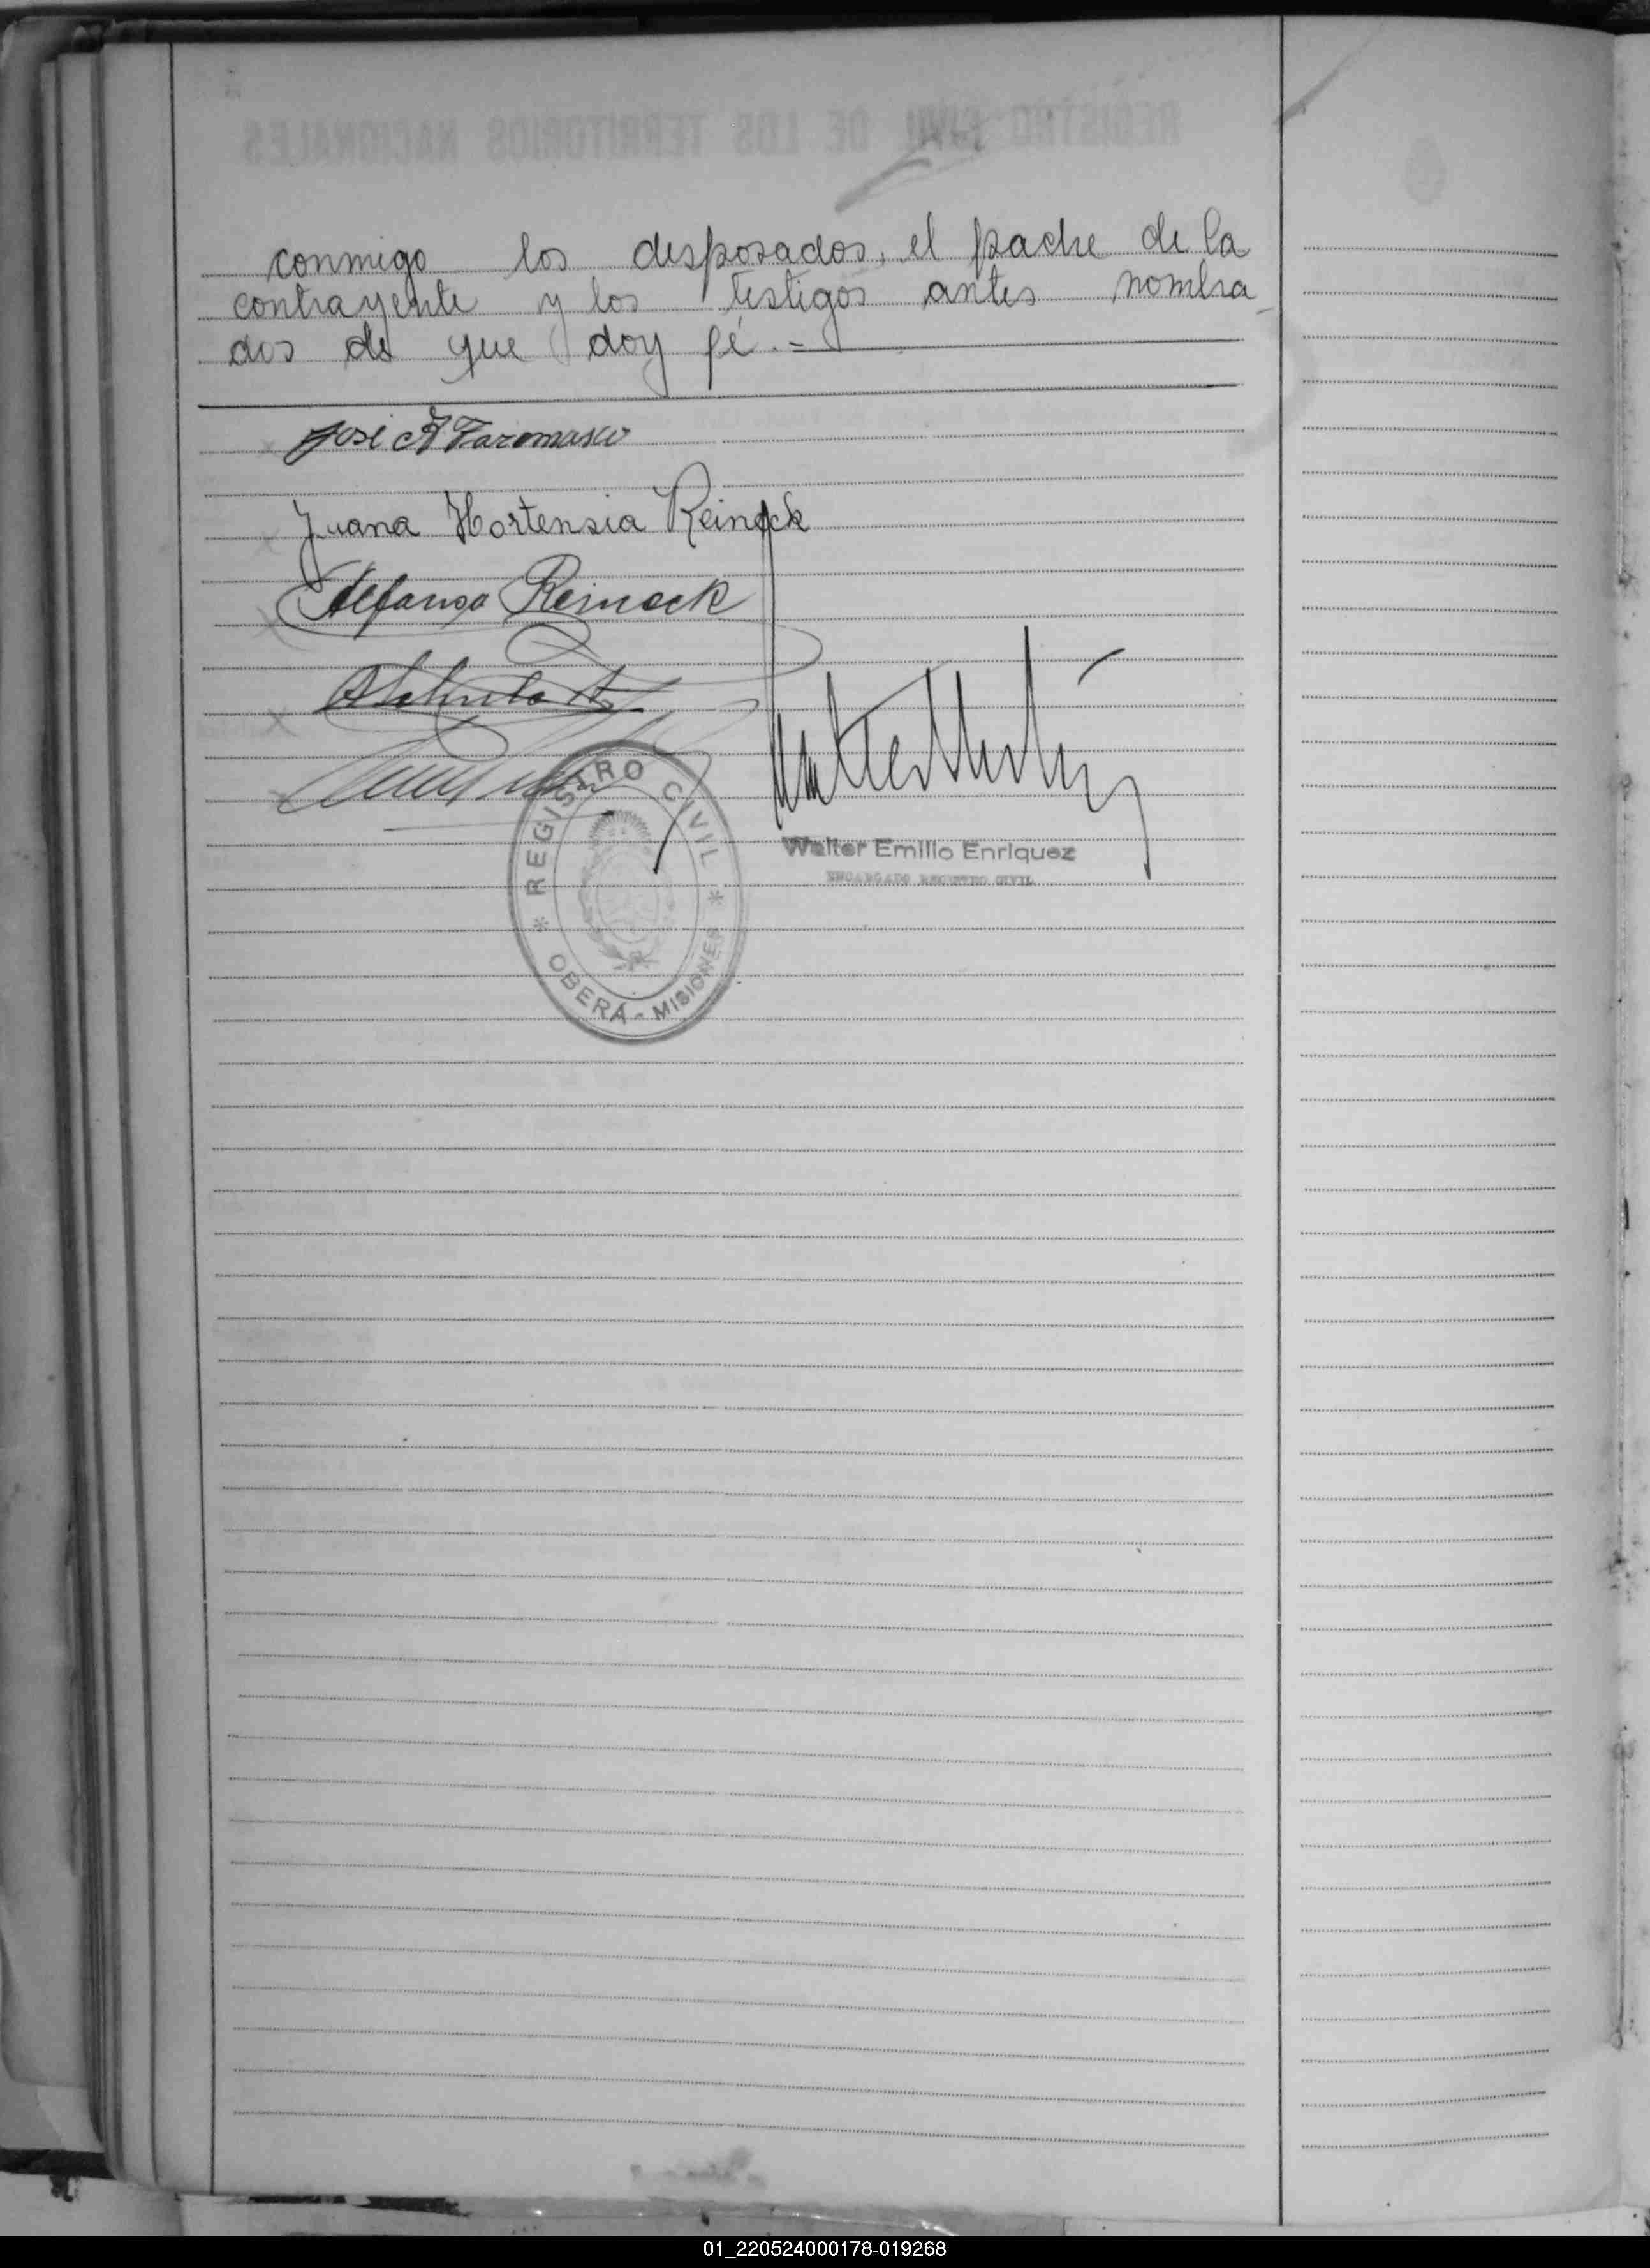 REGISTRO CIVIL DE LOS TERRITORIOS NACIONALES
conmigo los desposados, el padre de la
contrayente y los testigos antes nombra
dos de que doy fé.-
José A Taromasco
Juana Hortensia Reineck
Alfonso Reineck
REGISTRO CIVIL
* OBERÁ - MISIONES *
Walter Emilio Enriquez
ENCARGADO REGISTRO CIVIL
01_220524000178-019268